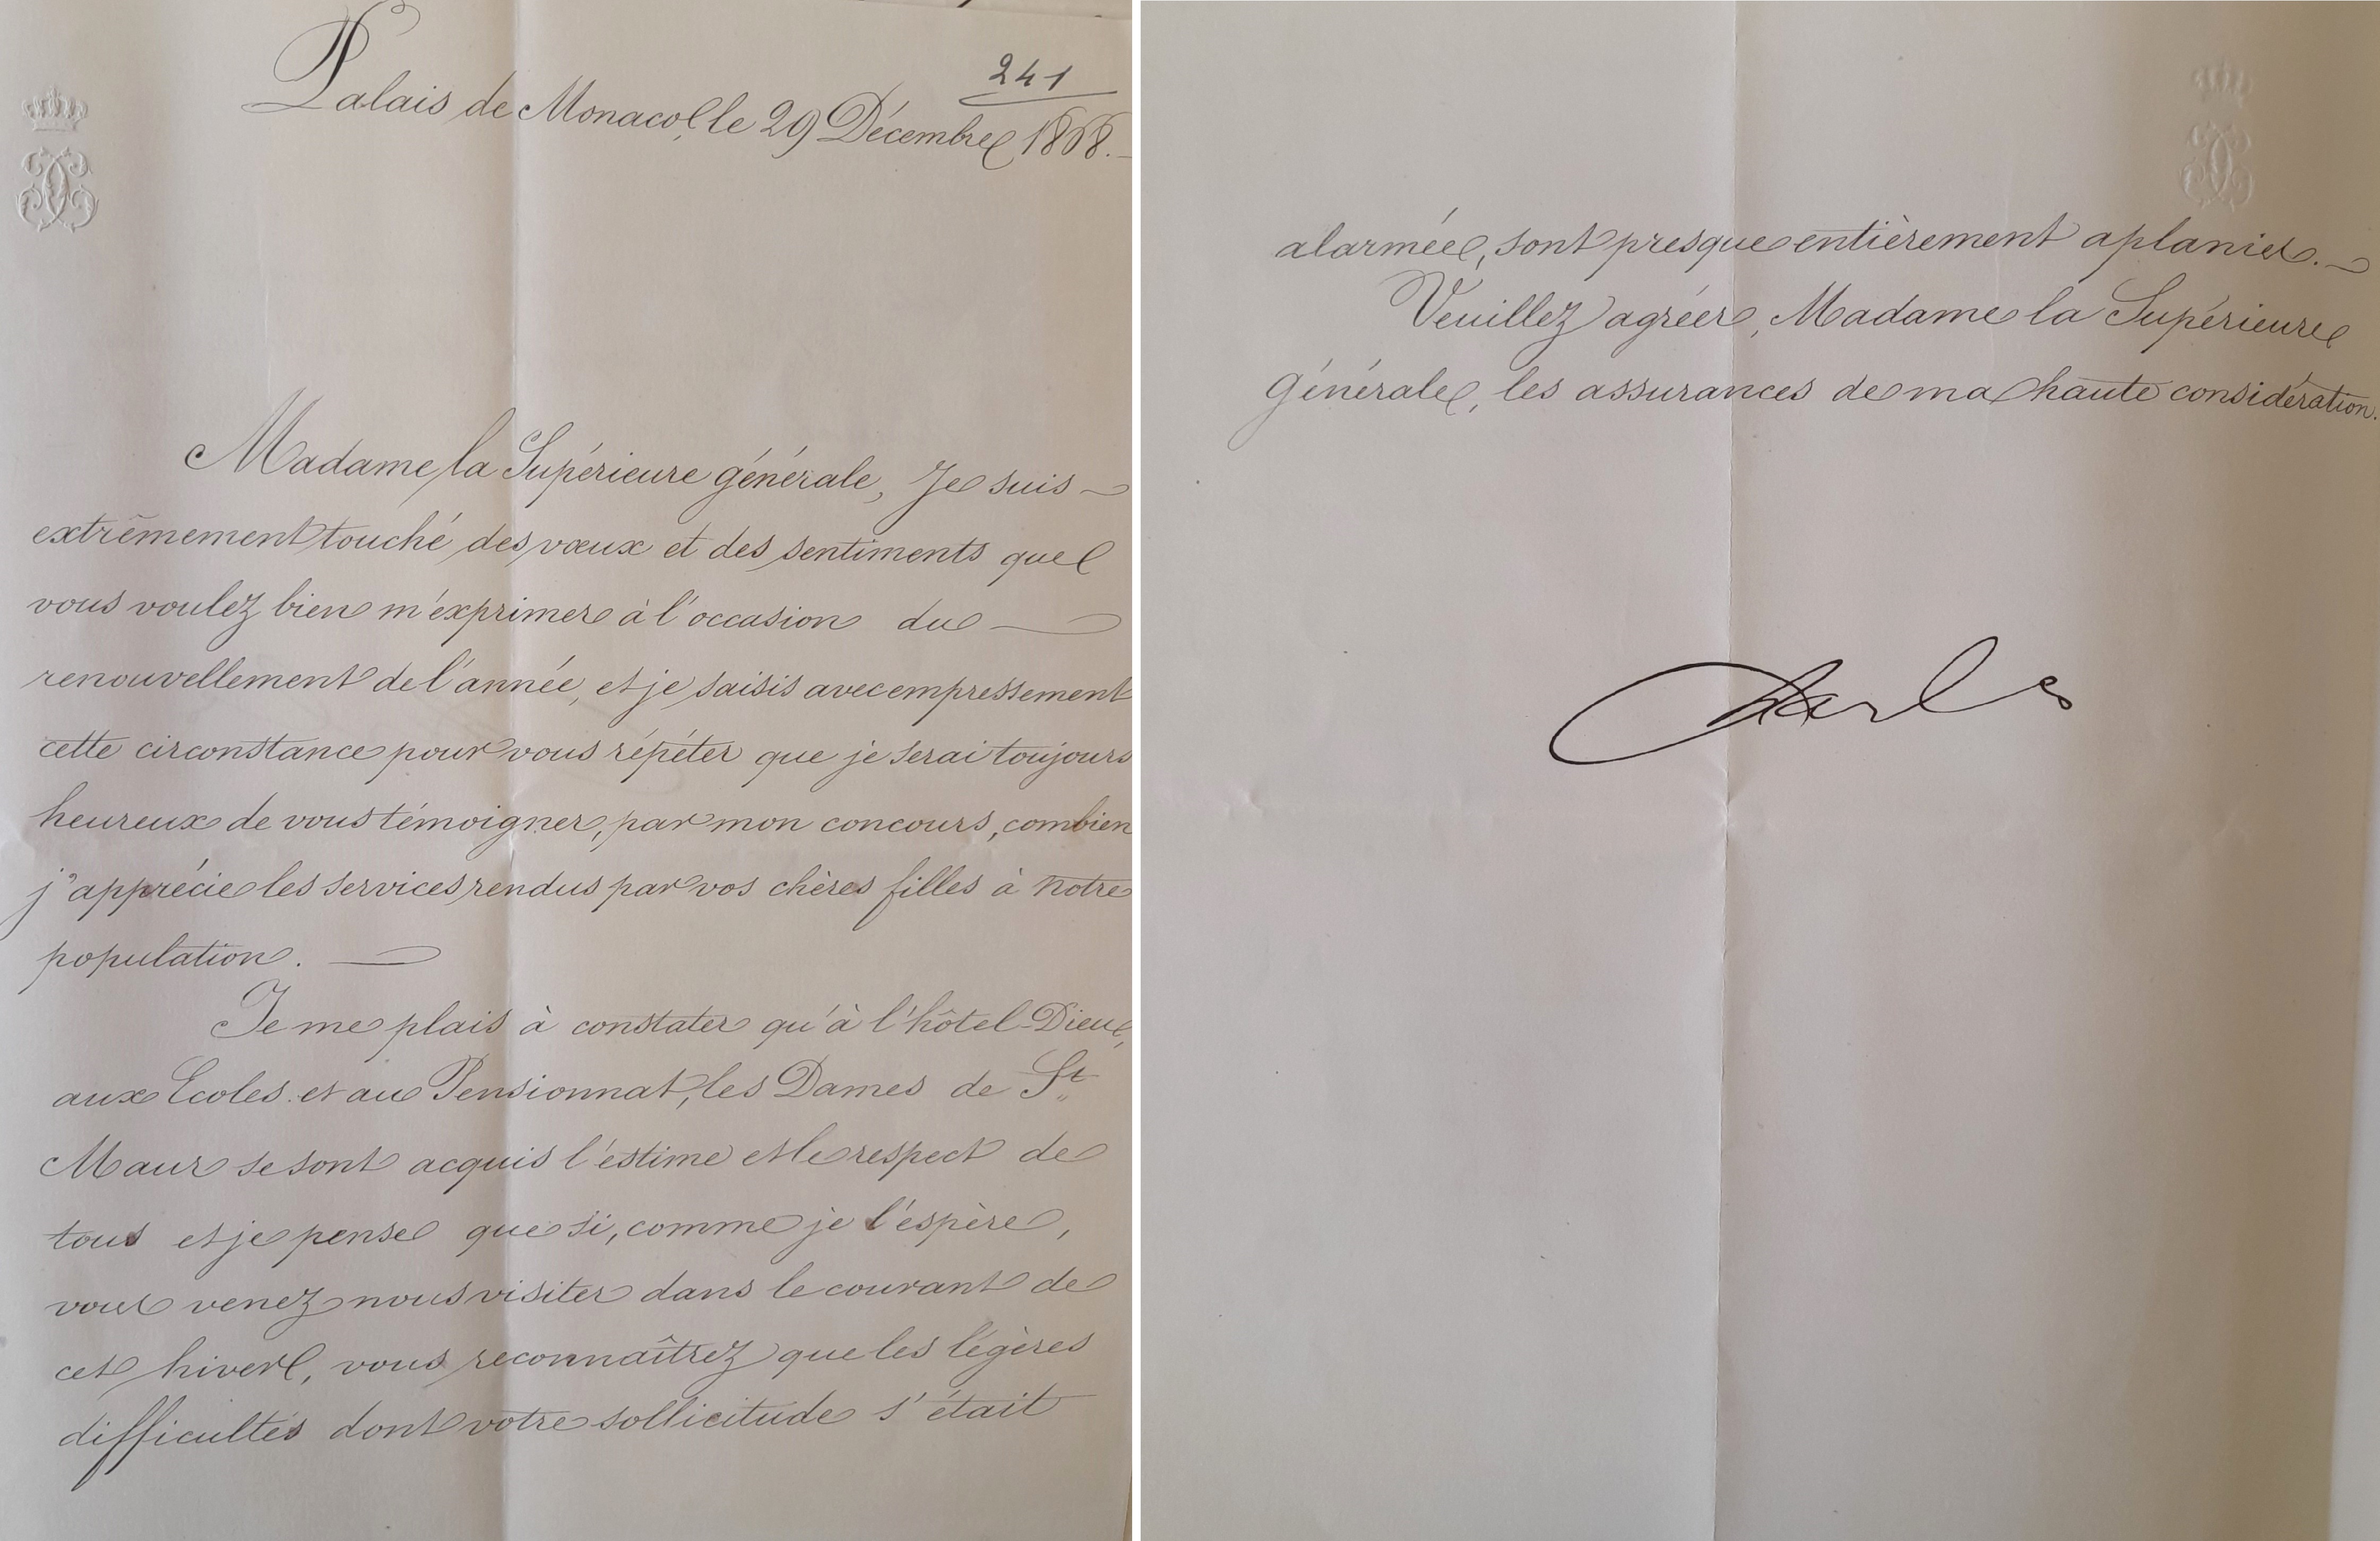 241
Palais de Monaco, le 29 Décembre 1868.
Madame la Supérieure générale, Je suis
extrêmement touché des vœux et des sentiments que
vous voulez bien m'exprimer à l'occasion du
renouvellement de l'année, et je saisis avec empressement
cette circonstance pour vous répéter que je serai toujours
heureux de vous témoigner, par mon concours, combien
j'apprécie les services rendus par vos chères filles à notre
population.
Je me plais à constater qu'à l'hôtel-Dieu,
aux Ecoles et au Pensionnat, les Dames de St
Maur se sont acquis l'estime et le respect de
tous et je pense que si, comme je l'espère,
vous venez nous visiter dans le courant de
cet hiver, vous reconnaîtrez que les légères
difficultés dont votre sollicitude s'était
alarmée, sont presque entièrement aplanies.
Veuillez agréer, Madame la Supérieure
Générale, les assurances de ma haute considération.
Charles